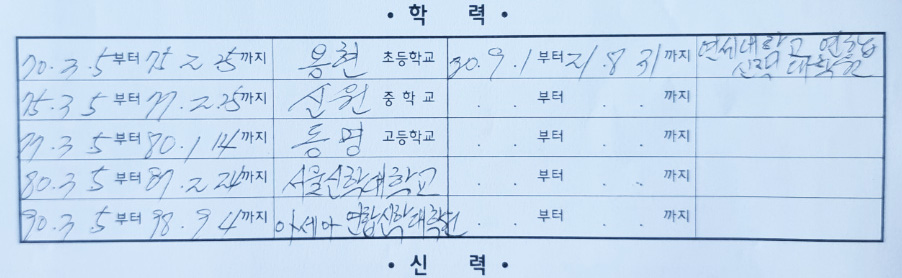 • 학 력 •
70. 3. 5부터 75. 2. 25까지 용현 초등학교 20. 9. 1부터 21. 8. 31까지 연세대학교 연합
신학대학원
75. 3. 5부터 77. 2. 25까지 신원 중학교 . . 부터 . . 까지
77. 3. 5부터 80. 1. 14까지 동명 고등학교 . . 부터 . . 까지
80. 3. 5부터 87. 2. 24까지 서울신학대학교 . . 부터 . . 까지
90. 3. 5부터 98. 9. 4까지 아세아 연합신학대학원 . . 부터 . . 까지
• 신 력 •